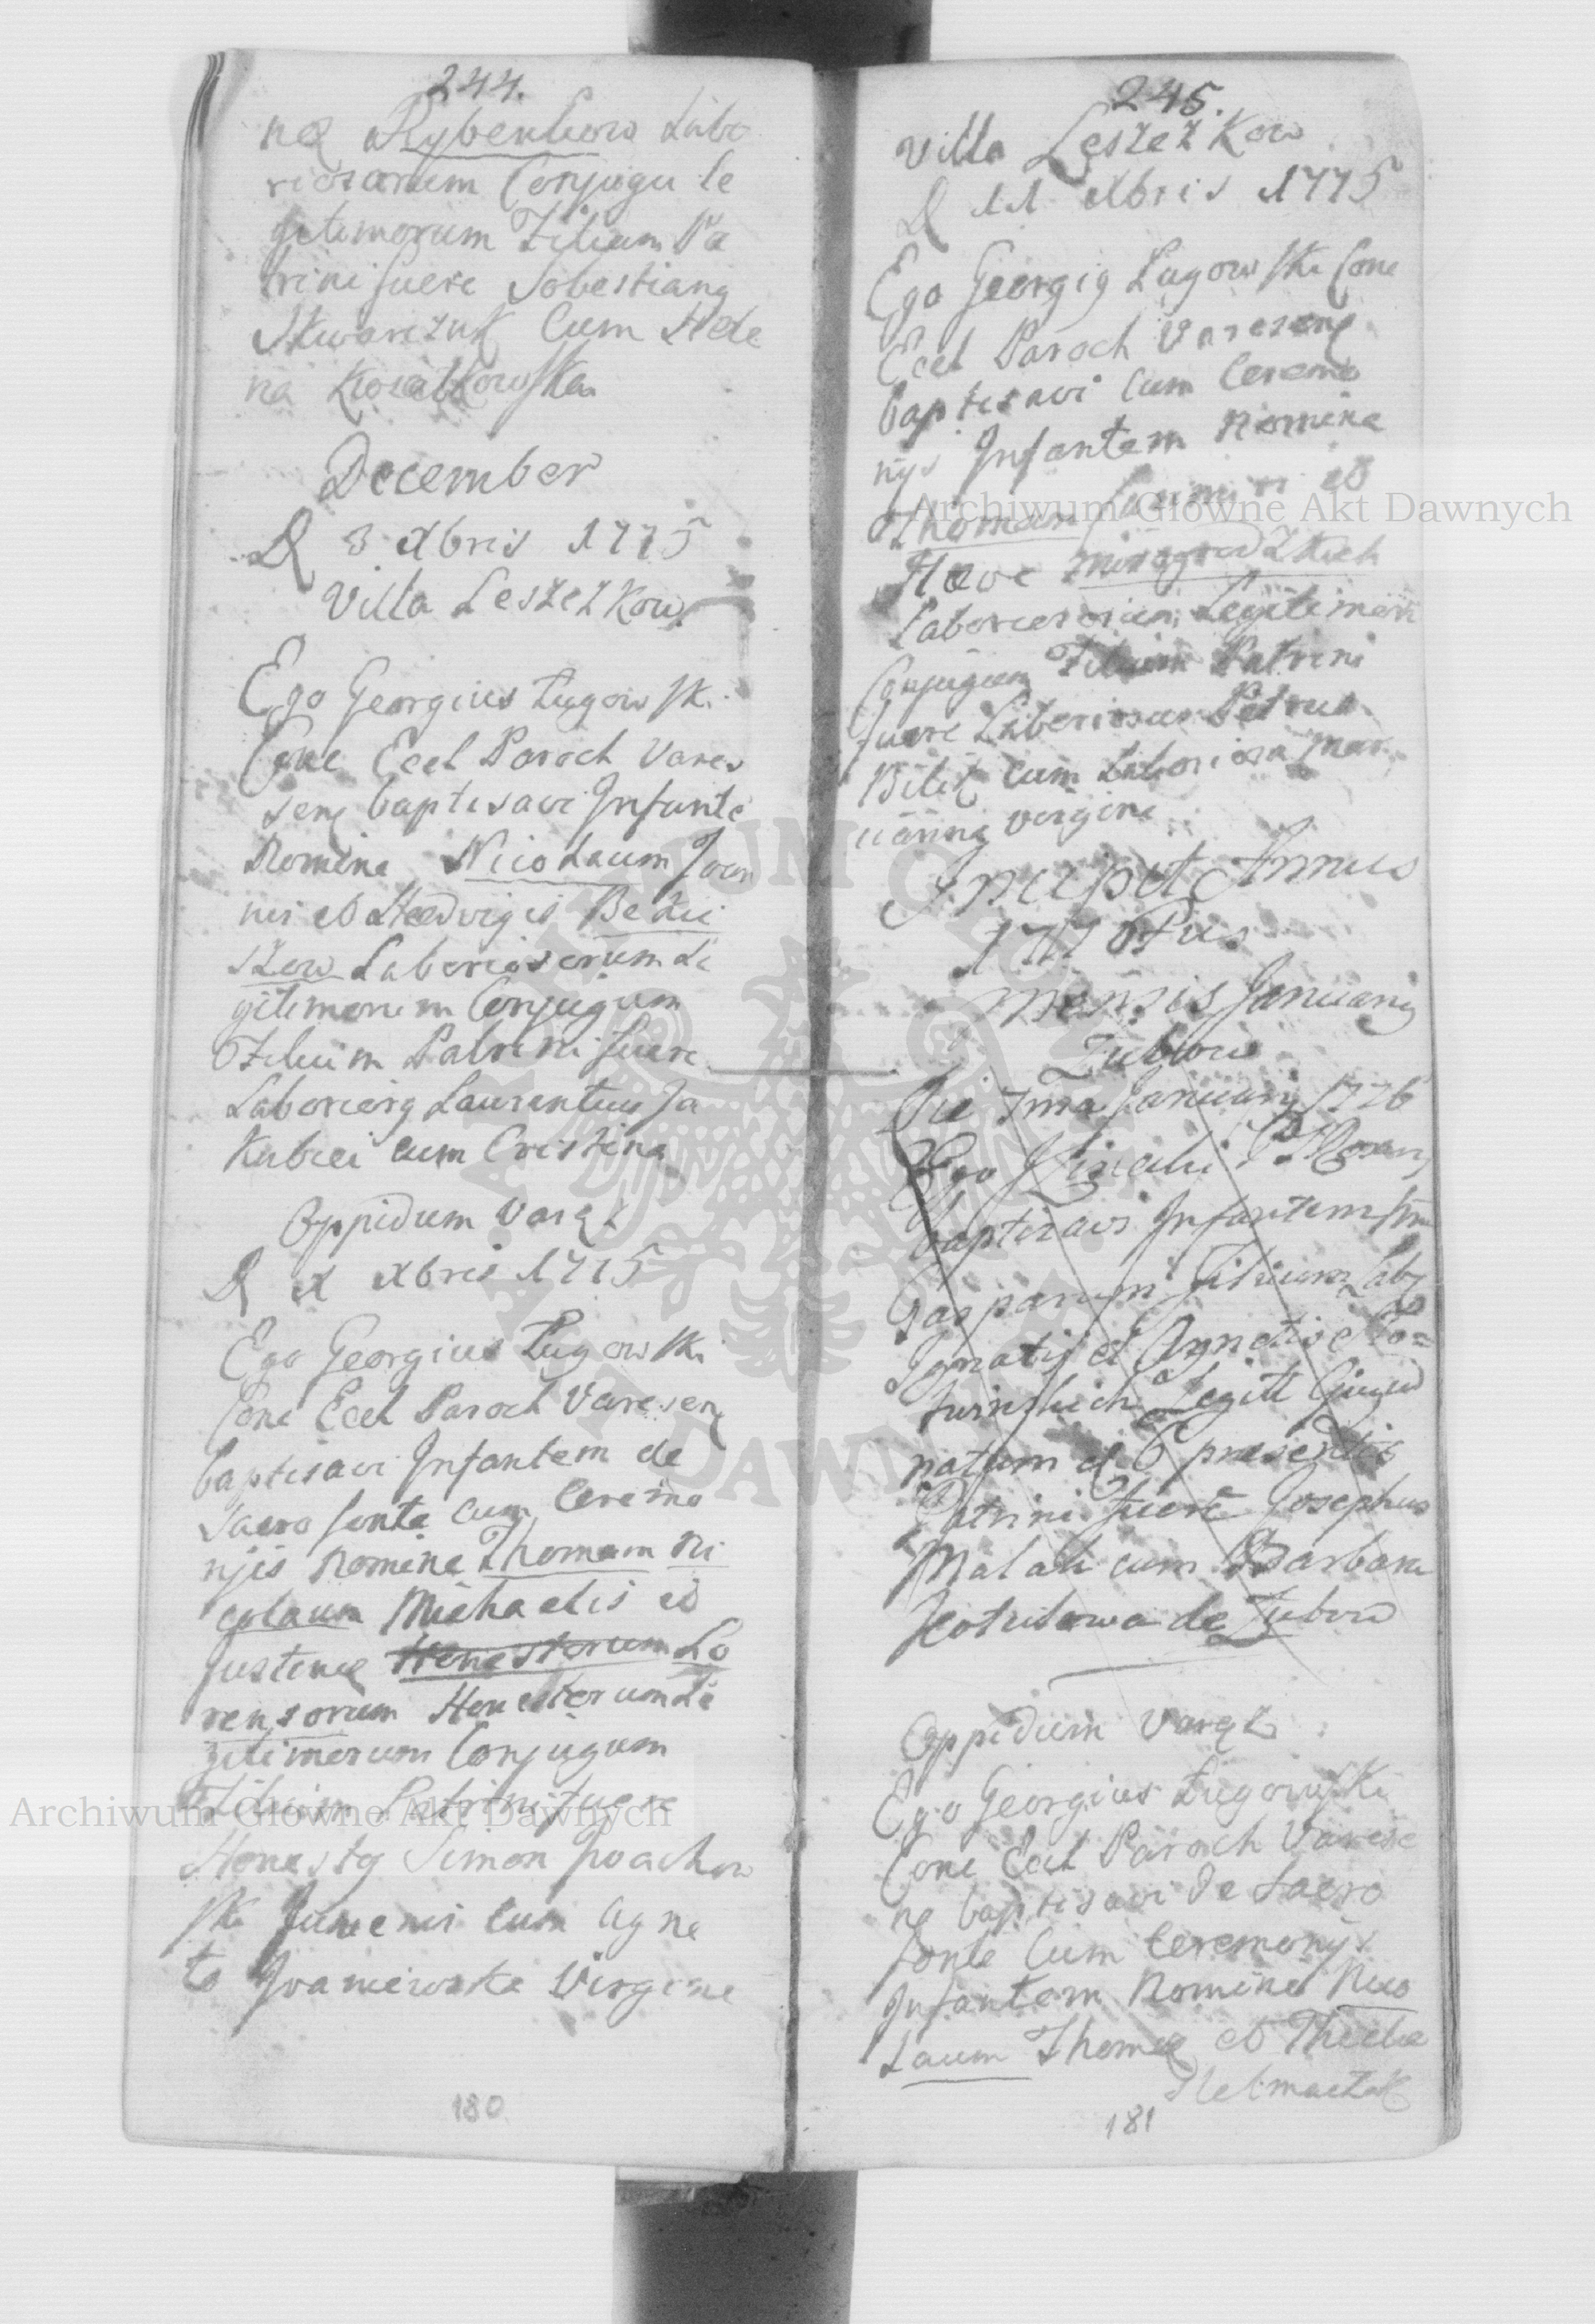 244.
næ Rybenkow Labo
riosorum Conjugu le
gitimorum Filium Pa
trini fuere Sobestiang
Skwarczuk Cum Hele
na Kwiatkowska
December
D 3 Xbris 1775
Villa Leszczkow
Ego Georgius Lugowski
Cone Eccl Paroch Vares
seng baptisavi Infante
Nomine Nicolaum Joan
nis et Hedvigis
Laboriosorum Le
gitimorum Conjugum
Filium Patrini fuere
Laboriosg Laurentius Ja
kubiei cum Cristina
Oppidum Varęż
D X Xbris 1775
Ego Georgius Lugowski
Cone Eccl Paroch Vareseng
baptisavi Infantem de
Sacro fonte cum Ceremo
nijs Nomine Thomam Ni
colaum Michaelis et
Justinæ Honestorum Lo
rensorum Honestorum Le
gitimorum Conjugum
Filium Patrini fuere
Honestg Simon
Juvenis cum Agne
te Iwaniewska Virgine
180
245.
Villa Leszczkow
D 11 Xbris 1775
Ego Georgig Lugowski Cone
Eccl Paroch Vareseng
baptisavi Cum Ceremo
nijs Infantem Nomine
Thomam et
Laboriosorum Legitimoru
Conjugum Filium Patrini
fuere Laboriosus Petrus
Bilik cum Laboriosa Mar
ianna virgine
Incipit Annus
1776tus
Mensis Januarij
Zubkow
Die 7ma Januarij 1776
Ego
baptisavi Infantem
Gasparum filium Lab
Ignatij et Agnetis
Legitt Conjug
natum d 6 presentis
Patrini fuere Josephus
Malak cum Barbara
de Zubkow
Oppidum Varęż
Ego Georgius Lugowski
Cone Eccl Paroch Varese
ng baptisavi De Sacro
fonte Cum Ceremonijs
Infantem Nomine Nico
laum Thomæ et Theclæ
181
Archiwum Główne Akt Dawnych
Archiwum Główne Akt Dawnych
ARCHIWUM GŁÓWNE
AKT DAWNYCH